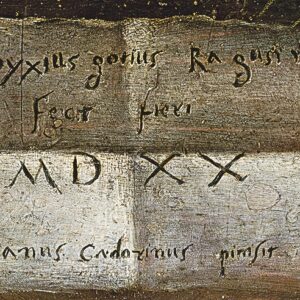 oyxius gotius Ragusin
Fect fieri
MDXX
anus Cadorinus pinsit